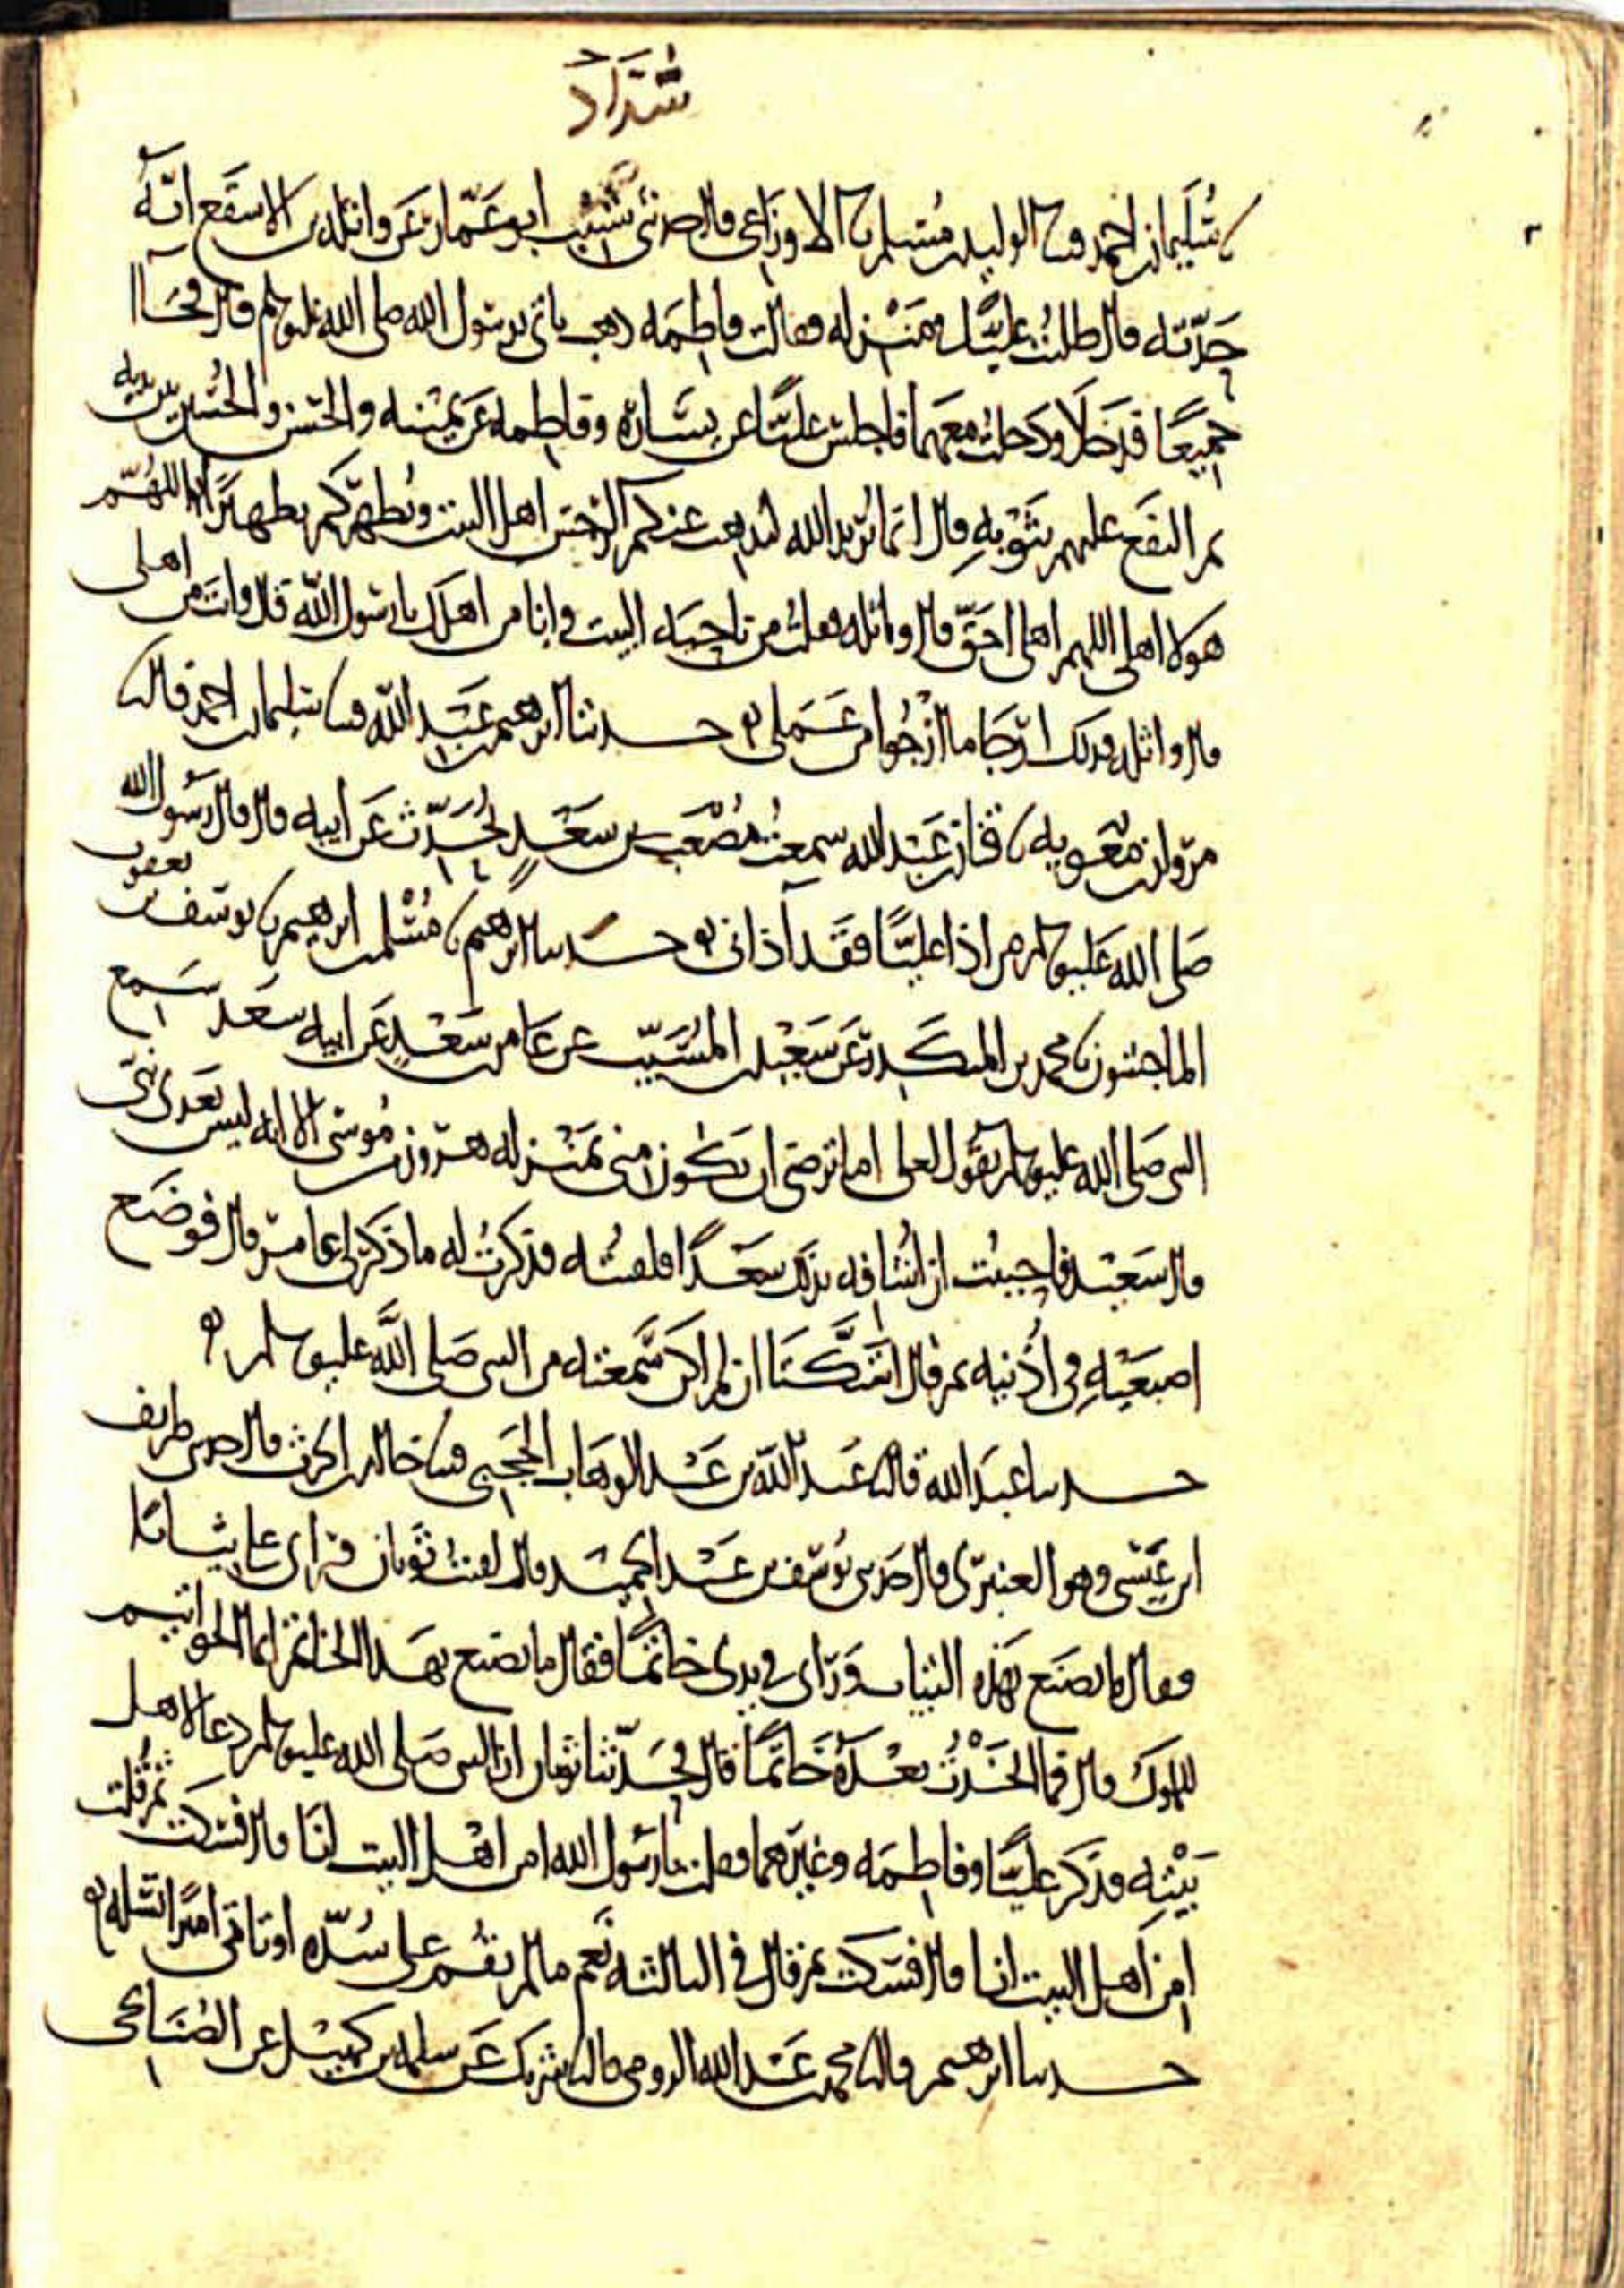 شداد
نا سليمان بن احمد ونا الوليد بن مسلم نا الاوزاعي قال حدثني ابو عمار عن واثلة بن الاسقع انه
حدثه قال طلبت عليا في منزله فقالت فاطمة ذهب ياتي برسول الله صلى الله عليه وسلم قال فجاآ
جميعا فدخلا ودخلت معهما فاجلس عليا عن يساره وفاطمة عن يمينه والحسن والحسين بين يديه
ثم التفع عليهم بثوبه قال انما يريد الله ليذهب عنكم الرجس اهل البيت ويطهركم تطهيرا اللهم
هولا اهلي اللهم اهلي احق قال واثلة فقلت من ناحية البيت وانا من اهلك يا رسول الله قال وانت من اهلي
قال واثلة فذلك ارجا ما ارجوا من عملي حدثنا ابرهيم بن عبد الله نا سليمان بن احمد قال نا
مروان بن معوية نا قنان بن عبد الله سمعت مصعب بن سعد يحدث عن ابيه قال قال رسول الله
صلى الله عليه وسلم من اذا عليا فقد آذاني حدثنا ابرهيم نا مسلم بن ابرهيم نا يوسف بن يعقوب
الماجشون نا محمد بن المنكدر عن سعيد بن المسيب عن عامر بن سعد عن ابيه سعد سمع
النبي صلى الله عليه وسلم يقول لعلي اما ترضى ان تكون مني بمنزله هرون من موسى الا انه ليس بعدي نبي
قال سعيد فاحببت ان اشافه بذلك سعدا فلقيته فذكرت له ما ذكر لي عامر قال فوضع
اصبعيه في اذنيه ثم قال استكتا ان لم اكن سمعته من النبي صلى الله عليه وسلم
حدثنا عبد الله قال نا عبد الله بن عبد الوهاب الحجبي نا خالد بن الحرث قال حدثني طريف
ابن عيسى وهو العنبري قال حدثني يوسف بن عبد الحميد قال لقيت ثوبان فراى علي ثيابا
فقال ما تصنع بهذه الثياب وراى في يدي خاتما فقال ما تصنع بهذا الخاتم انما الخواتيم
للملوك قال فما اتخذت بعده خاتما قال فحدثنا ثوبان ان النبي صلى الله عليه وسلم دعا لاهل
بيته فذكر عليا وفاطمة وغيرهما فقلت يا رسول الله امن اهل البيت انا قال فسكت ثم قلت
امن اهل البيت انا قال فسكت ثم قال في الثالثة نعم ما لم تقم على سدة او تاتي اميرا تسله
حدثنا ابرهيم قال نا محمد بن عبد الله الرومي قال نا شريك عن سلمه بن كهيل عن الصنابحي